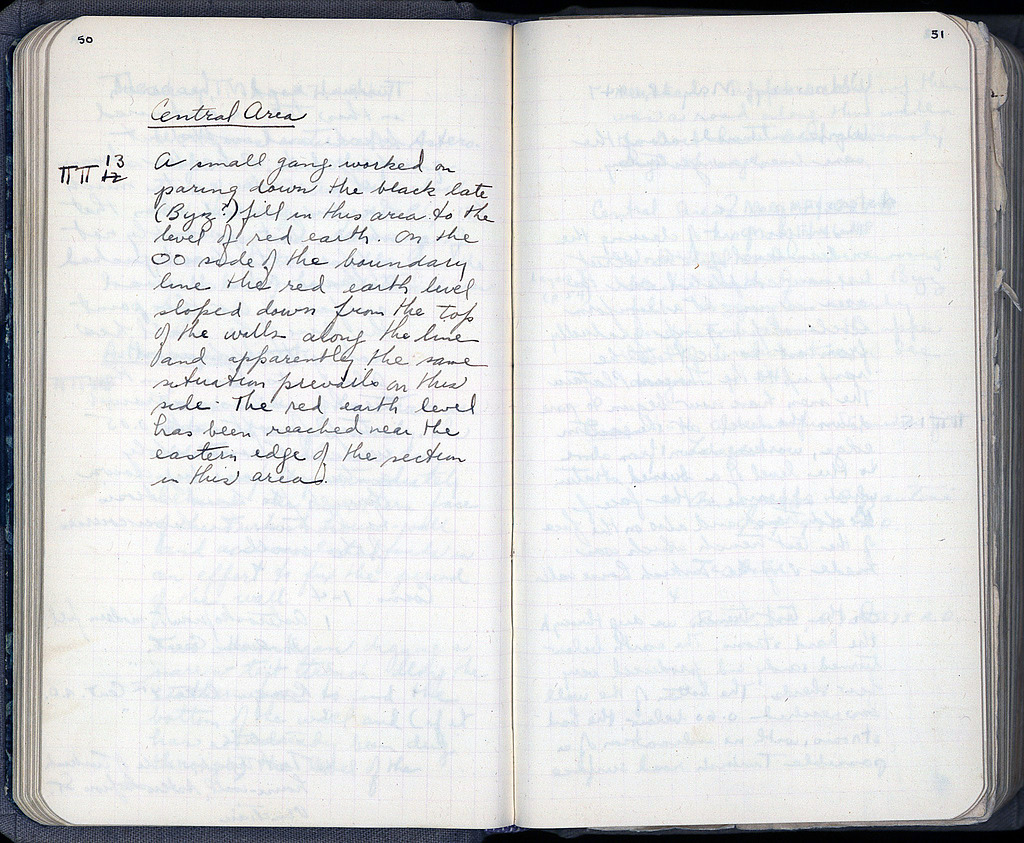 50
51
Central Area
ΠΠ 13
12
A small gang worked on
paring down the black late
(Byz?) fill in this area to the
level of red earth. On the
OO side of the boundary
line the red earth level
sloped down from the top
of the walls along the line
and apparently the same
situation prevails on this
side. The red earth level
has been reached near the
eastern edge of the section
in this area.